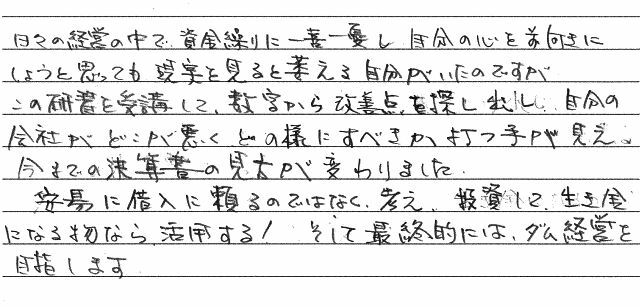 日々の経営の中で、資金繰りに一喜一憂し、自分の心を前向きに
しようと思っても現実を見ると萎える自分がいたのですが
この研修を受講して、数字から改善点を探し出し、自分の
会社がどこが悪くどの様にすべきか、打つ手が見え、
今までの決算書の見方が変わりました。
安易に借入に頼るのではなく、考え、投資して、生き金
になる物なら活用する！そして最終的には、ダム経営を
目指します